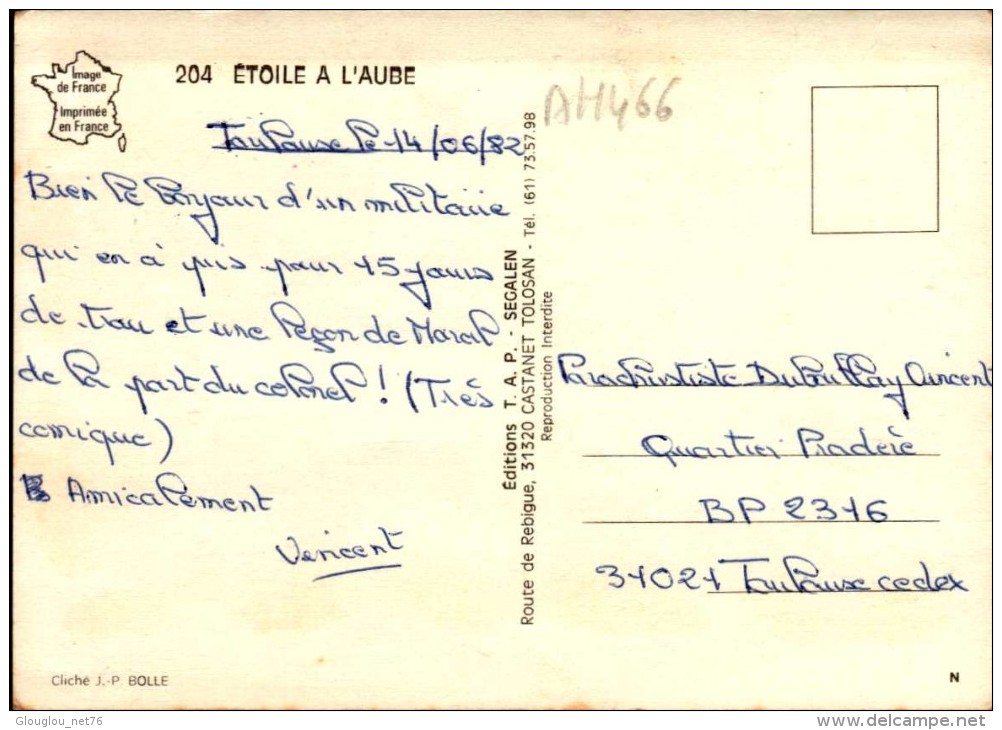 Image
de France
Imprimée
en France
204 ÉTOILE A L'AUBE
AH466
Toulouse le 14/06/82
Bien le bonjour d'un militaire
qui en à pris pour 15 jours
de trou et une leçon de Moral
de la part du colonel ! (Très
comique)
Amicalement
Vincent
Éditions T. A. P. - SEGALEN
Route de Rebigue, 31320 CASTANET TOLOSAN - Tél. (61) 73.57.98
Reproduction Interdite
Parachustiste Duboullay Vincent
Quartier Pradère
BP 2316
31021 Toulouse cedex
Cliché J.-P. BOLLE
N
Glouglou_net76
www.delcampe.net